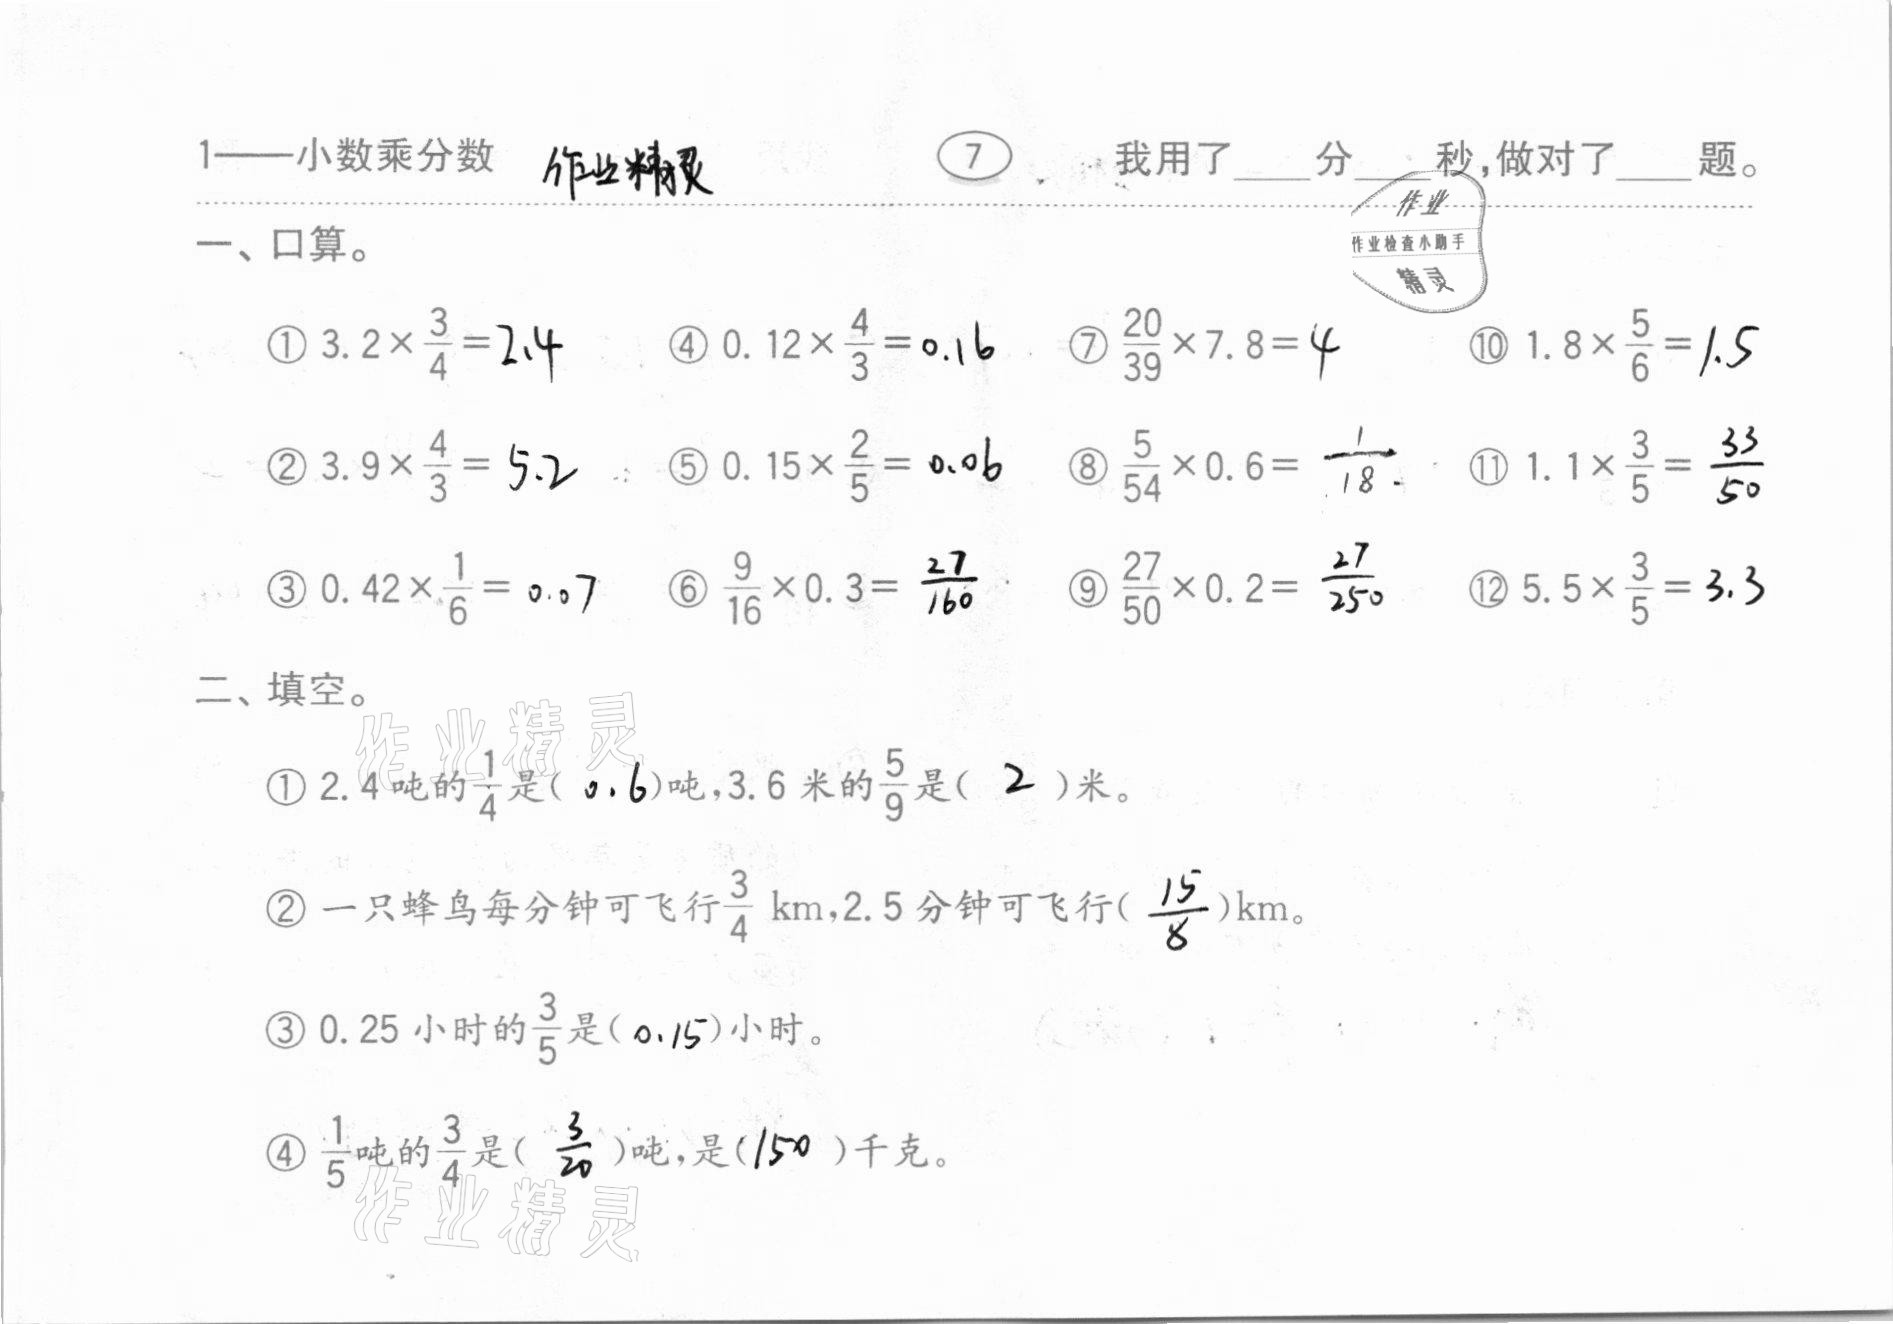 1——小数乘分数 作业精灵 7 我用了____分____秒,做对了____题。
作业
作业检查小助手
精灵
一、口算。
① 3.2×3/4=2.4 ④ 0.12×4/3=0.16 ⑦ 20/39×7.8=4 ⑩ 1.8×5/6=1.5
② 3.9×4/3=5.2 ⑤ 0.15×2/5=0.06 ⑧ 5/54×0.6=1/18 ⑪ 1.1×3/5=33/50
③ 0.42×1/6=0.07 ⑥ 9/16×0.3=27/160 ⑨ 27/50×0.2=27/250 ⑫ 5.5×3/5=3.3
二、填空。
作业精灵
① 2.4吨的1/4是(0.6)吨,3.6米的5/9是(2)米。
② 一只蜂鸟每分钟可飞行3/4 km,2.5分钟可飞行(15/8)km。
③ 0.25小时的3/5是(0.15)小时。
④ 1/5吨的3/4是(3/20)吨,是(150)千克。
作业精灵